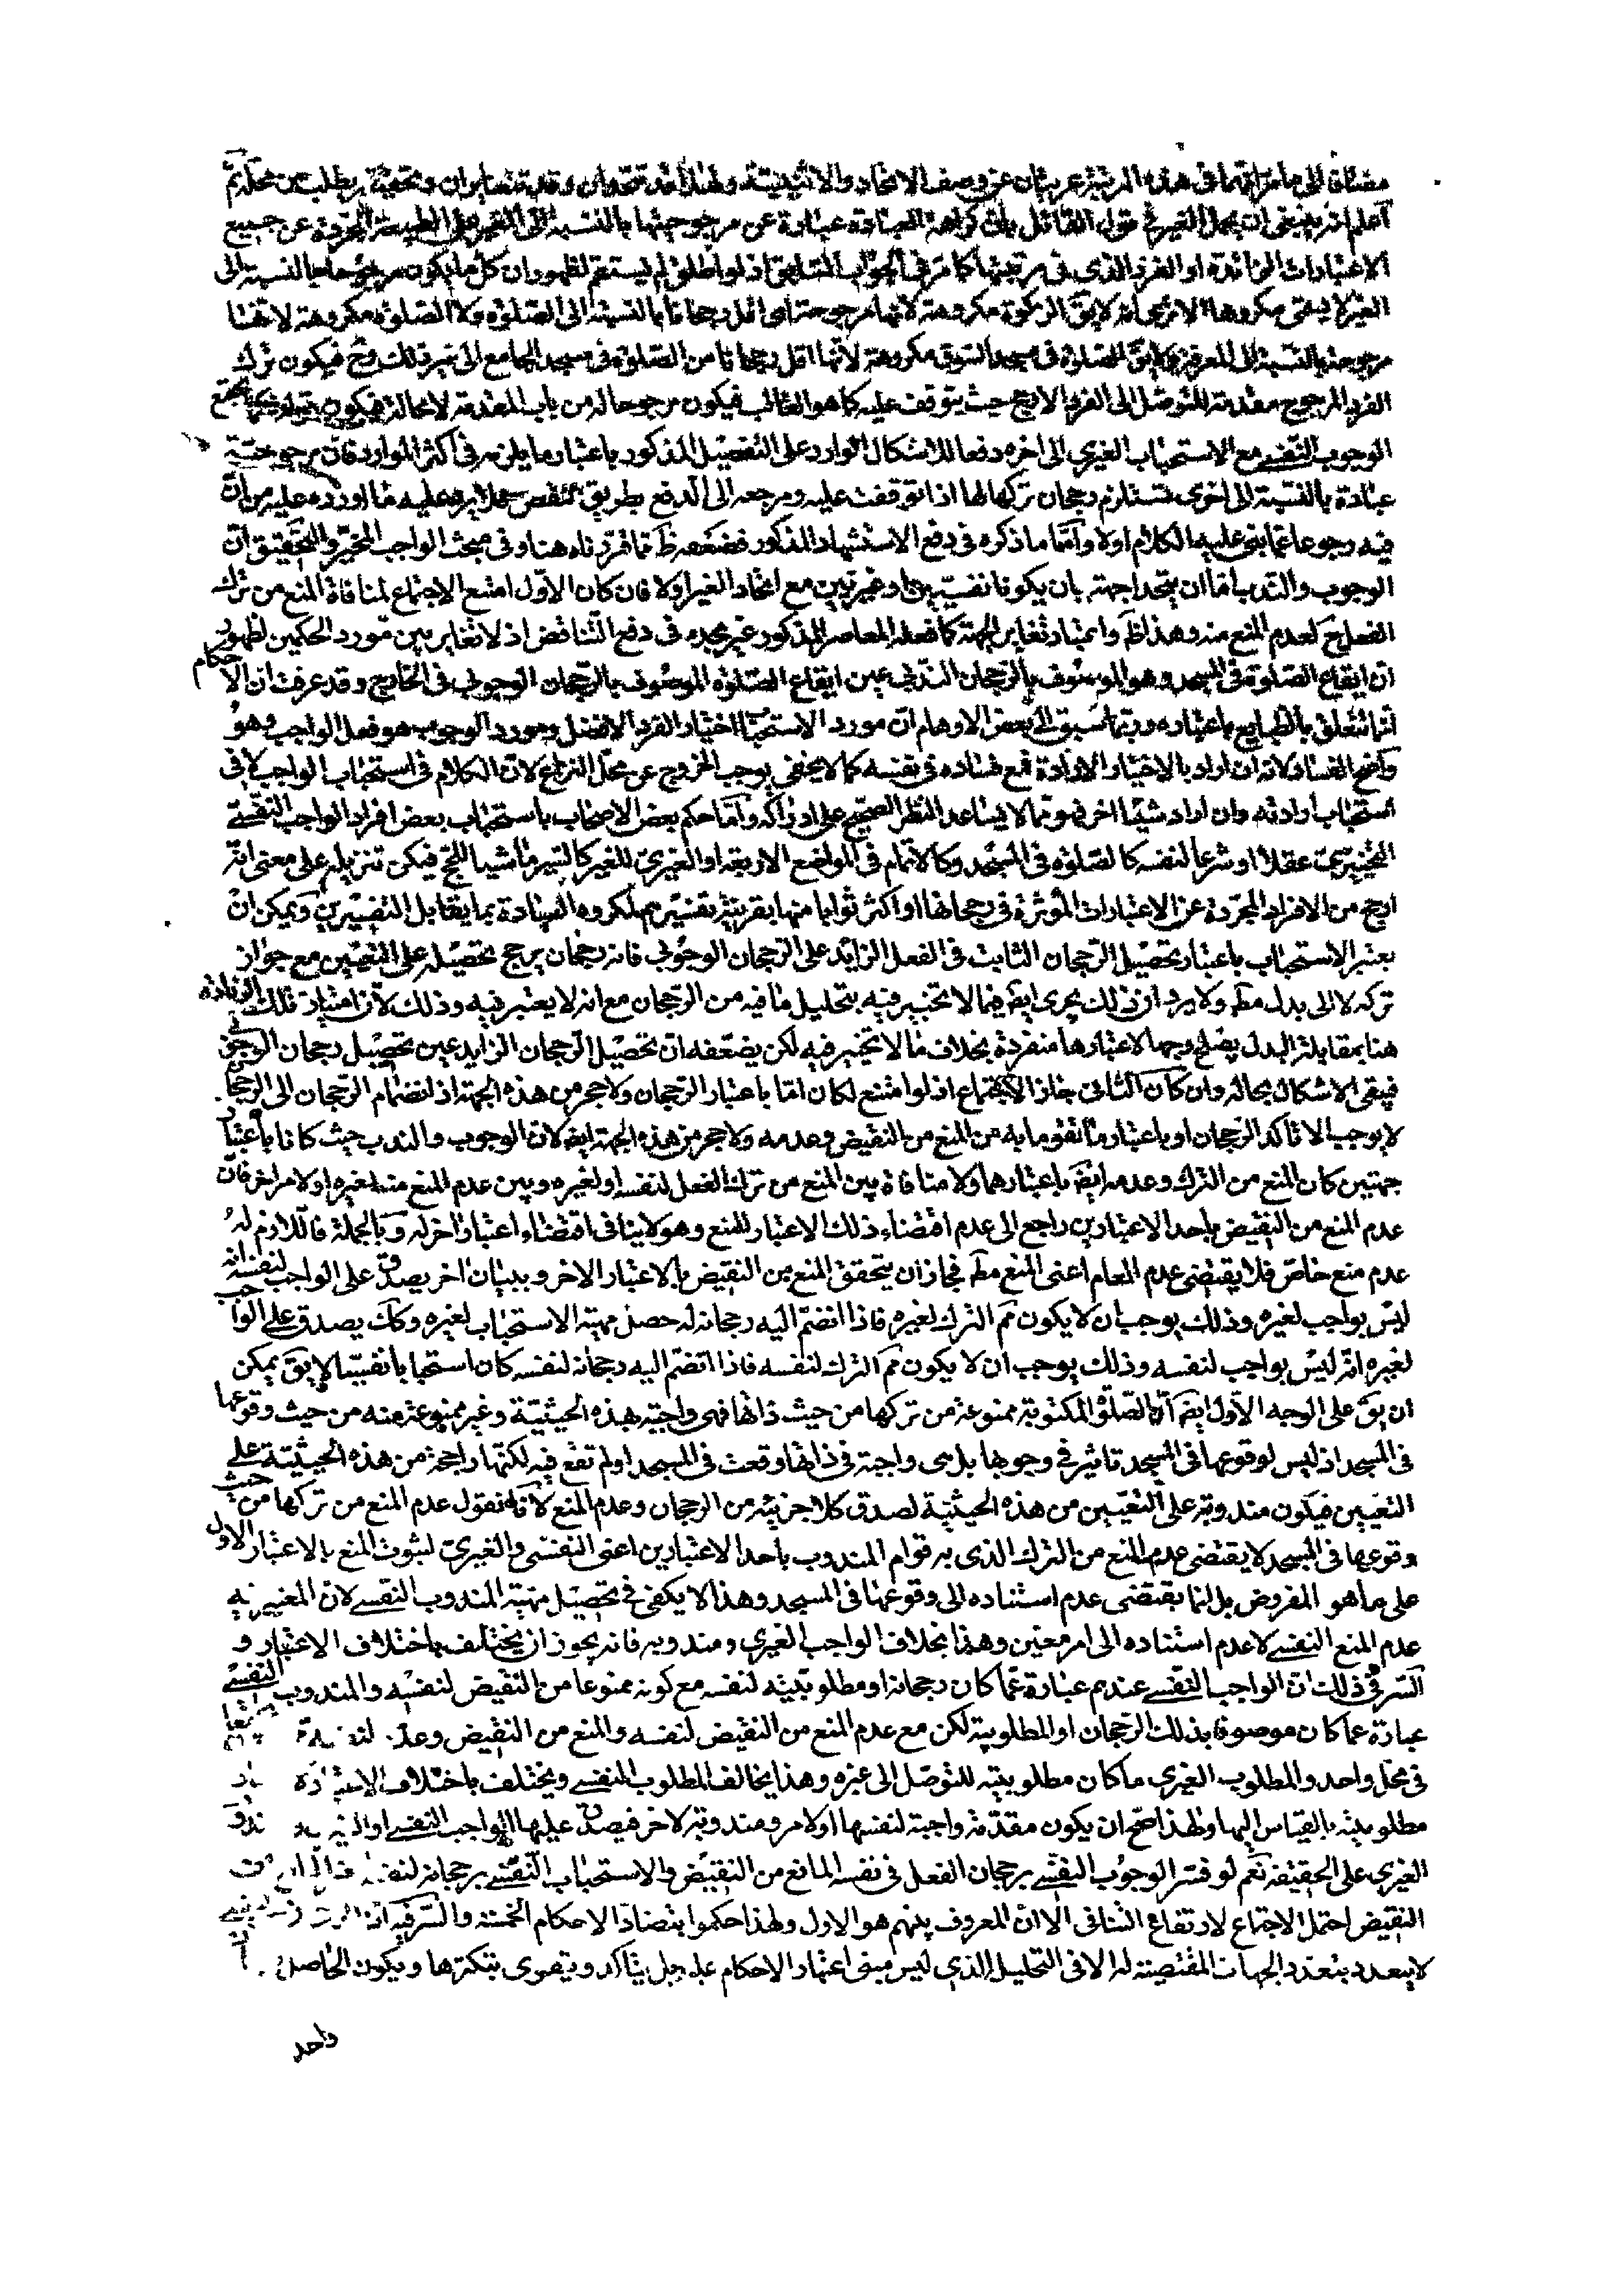 مضافا الى ما مر انهما فى هذه المرتبة عريتان عن وصف الاتحاد والاثنينية ولهذا قد تتحدان وقد تتغايران وتحقيقه يطلب من محله ثم
اعلم انه ينبغى ان يحمل الغير فى قول القائل بان كراهة العبادة عبارة عن مرجوحيتها بالنسبة الى الغير على الطبيعة المجردة عن جميع
الاعتبارات الزائدة او الفرد الذى فى مرتبتها كما مر فى الجواب السابق اذ لو اطلق لم يستقم لظهور ان كل ما يكون مرجوحا بالنسبة الى
الغير لا يسمى مكروها الا ترى انه لا يق الزكوة مكروهة لانها مرجوحة اى اقل رجحانا بالنسبة الى الصلوة ولا الصلوة مكروهة لانها
مرجوحة بالنسبة الى المعرفة ولا يق الصلوة فى مسجد السوق مكروهة لانها اقل رجحانا من الصلوة فى مسجد الجامع الى غير ذلك وح فيكون ترك
الفرد المرجوح مقدمة للتوصل الى الفرد الارجح حيث يتوقف عليه كما هو الغالب فيكون مرجوحا له من باب المقدمة لا محالة فيكون قوله فيجتمع
الوجوب النفسى مع الاستحباب الغيرى الى اخره دفعا للاشكال الوارد على التفصيل المذكور باعتبار ما يلزمه فى اكثر الموارد فان مرجوحية
عبادة بالنسبة الى اخرى تستلزم رجحان تركها لها اذا توقفت عليه ومرجعه الى الدفع بطريق النقض فلا يرد عليه ما اورده عليه من ان
فيه رجوعا عما بنى عليه الكلام اولا واما ما ذكره فى دفع الاستشهاد المذكور فضعفه ظ مما قررناه هنا وفى مبحث الواجب المخير والتحقيق ان
الوجوب والندب اما ان يتحدا جهة بان يكونا نفسيين او غيريين مع اتحاد الغير اولا فان كان الاول امتنع الاجتماع لمنافاة المنع من ترك
الفعل ح لعدم المنع منه وهذا ظ واعتبار تغاير الجهة كما فعله المعاصر المذكور غير مجد فى دفع التناقض اذ لا تغاير بين مورد الحكمين لظهور
ان ايقاع الصلوة فى المسجد وهو الموصوف بالرجحان الندبى عين ايقاع الصلوة الموصوف بالرجحان الوجوبى فى الخارج وقد عرفت ان الاحكام
انما تتعلق بالطبايع باعتباره وربما سبق الى بعض الاوهام ان مورد الاستحباب اختيار الفرد الافضل ومورد الوجوب هو فعل الواجب وهو
واضح الفساد لانه ان اراد بالاختيار الارادة فمع فساده فى نفسه كما لا يخفى يوجب الخروج عن محل النزاع لان الكلام فى استحباب الواجب لا فى
استحباب ارادته وان اراد شيئا اخر فهو مما لا يساعد النظر الصحيح على ادراكه واما حكم بعض الاصحاب باستحباب بعض افراد الواجب النفسى
التخييرى عقلا او شرعا لنفسه كالصلوة فى المسجد وكالاتمام فى المواضع الاربعة او الغيرى للغير كالسير ماشيا للحج فيمكن تنزيله على معنى انه
ارجح من الافراد المجردة عن الاعتبارات المؤثرة فى رجحانها او اكثر ثوابا منها بقرينة تفسيرهم لمكروه العبادة بما يقابل التفسيرين ويمكن ان
يعتبر الاستحباب باعتبار تحصيل الرجحان الثابت فى الفعل الزايد على الرجحان الوجوبى فانه رجحان يرجح تحصيله على التعيين مع جواز
تركه لا الى بدل مط ولا يرد ان ذلك يجرى ايض فيما لا تخيير فيه بتحليل ما فيه من الرجحان مع انه لا يعتبر فيه وذلك لان امتياز تلك الزيادة
هنا بمقايسة البدل يصلح وجها لاعتبارها منفردة بخلاف ما لا تخيير فيه لكن يضعفه ان تحصيل الرجحان الزايد عين تحصيل رجحان الوجوبى
فيبقى الاشكال بحاله وان كان الثانى جاز الاجتماع اذ لو امتنع لكان اما باعتبار الرجحان ولا حجر من هذه الجهة اذ انضمام الرجحان الى الرجحان
لا يوجب الا تاكد الرجحان او باعتبار ما تقوما به من المنع من النقيض وعدمه ولا حجر من هذه الجهة ايض لان الوجوب والندب حيث كانا باعتبار
جهتين كان المنع من الترك وعدمه ايض باعتبارهما ولا منافاة بين المنع من ترك الفعل لنفسه او لغيره وبين عدم المنع منه لغيره او لامر اخر فان
عدم المنع من النقيض باحد الاعتبارين راجع الى عدم اقتضاء ذلك الاعتبار للمنع وهو لا ينافى اقتضاء اعتبار اخر له وبالجملة فاللازم له
عدم منع خاص فلا يقتضى عدم العام اعنى المنع مط فجاز ان يتحقق المنع من النقيض بالاعتبار الاخر وببيان اخر يصدق على الواجب لنفسه انه
ليس بواجب لغيره وذلك يوجب ان لا يكون مم الترك لغيره فاذا انضم اليه رجحانه له حصل مهية الاستحباب لغيره وكك يصدق على الواجب
لغيره انه ليس بواجب لنفسه وذلك يوجب ان لا يكون مم الترك لنفسه فاذا انضم اليه رجحانه لنفسه كان استحبابا نفسيا لا يق يمكن
ان يق على الوجه الاول ايض ان الصلوة المكتوبة ممنوعة من تركها من حيث ذاتها فهى واجبة بهذه الحيثية وغير ممنوعة منه من حيث وقوعها
فى المسجد اذ ليس لوقوعها فى المسجد تاثير فى وجوبها بل هى واجبة فى ذاتها وقعت فى المسجد او لم تقع فيه لكنها راجحة من هذه الحيثية على
التعيين فيكون مندوبة على التعيين من هذه الحيثية لصدق كلا جزئيه من الرجحان وعدم المنع لانا نقول عدم المنع من تركها من حيث
وقوعها فى المسجد لا يقتضى عدم المنع من الترك الذى به قوام المندوب باحد الاعتبارين اعنى النفسى والغيرى لثبوت المنع بالاعتبار الاول
على ما هو المفروض بل انما يقتضى عدم استناده الى وقوعها فى المسجد وهذا لا يكفى فى تحصيل مهية المندوب النفسى لان المعتبر فيه
عدم المنع النفسى لا عدم استناده الى امر معين وهذا بخلاف الواجب الغيرى ومندوبه فانه يجوز ان يختلف باختلاف الاعتبار و
السر فى ذلك ان الواجب النفسى عندهم عبارة عما كان رجحانه او مطلوبيته لنفسه مع كونه ممنوعا من النقيض لنفسه والمندوب النفسى
عبارة عما كان موصوفا بذلك الرجحان او المطلوبية لكن مع عدم المنع من النقيض لنفسه والمنع من النقيض وعد
فى محل واحد والمطلوب الغيرى ما كان مطلوبيته للتوصل الى غيره وهذا يخالف المطلوب النفسى ويختلف باختلاف
مطلوبيته بالقياس اليها ولهذا صح ان يكون مقدمة واجبة لنفسها او لامر ومندوبة لاخر فيصدق عليها الواجب النفسى او
الغيرى على الحقيقة نعم لو فسر الوجوب النفسى برجحان الفعل فى نفسه المانع من النقيض والاستحباب النفسى برجحانه
النقيض احتمل الاجتماع لارتفاع التنافى الا ان المعروف بينهم هو الاول ولهذا حكموا بتضاد الاحكام الخمسة والسر فيه ان
لا يتعدد بتعدد الجهات المقتضية له الا فى التحليل الذى ليس مبنى اعتبار الاحكام عليه بل يتاكد ويتقوى بتكثرها ويكون الحاصل
واحد